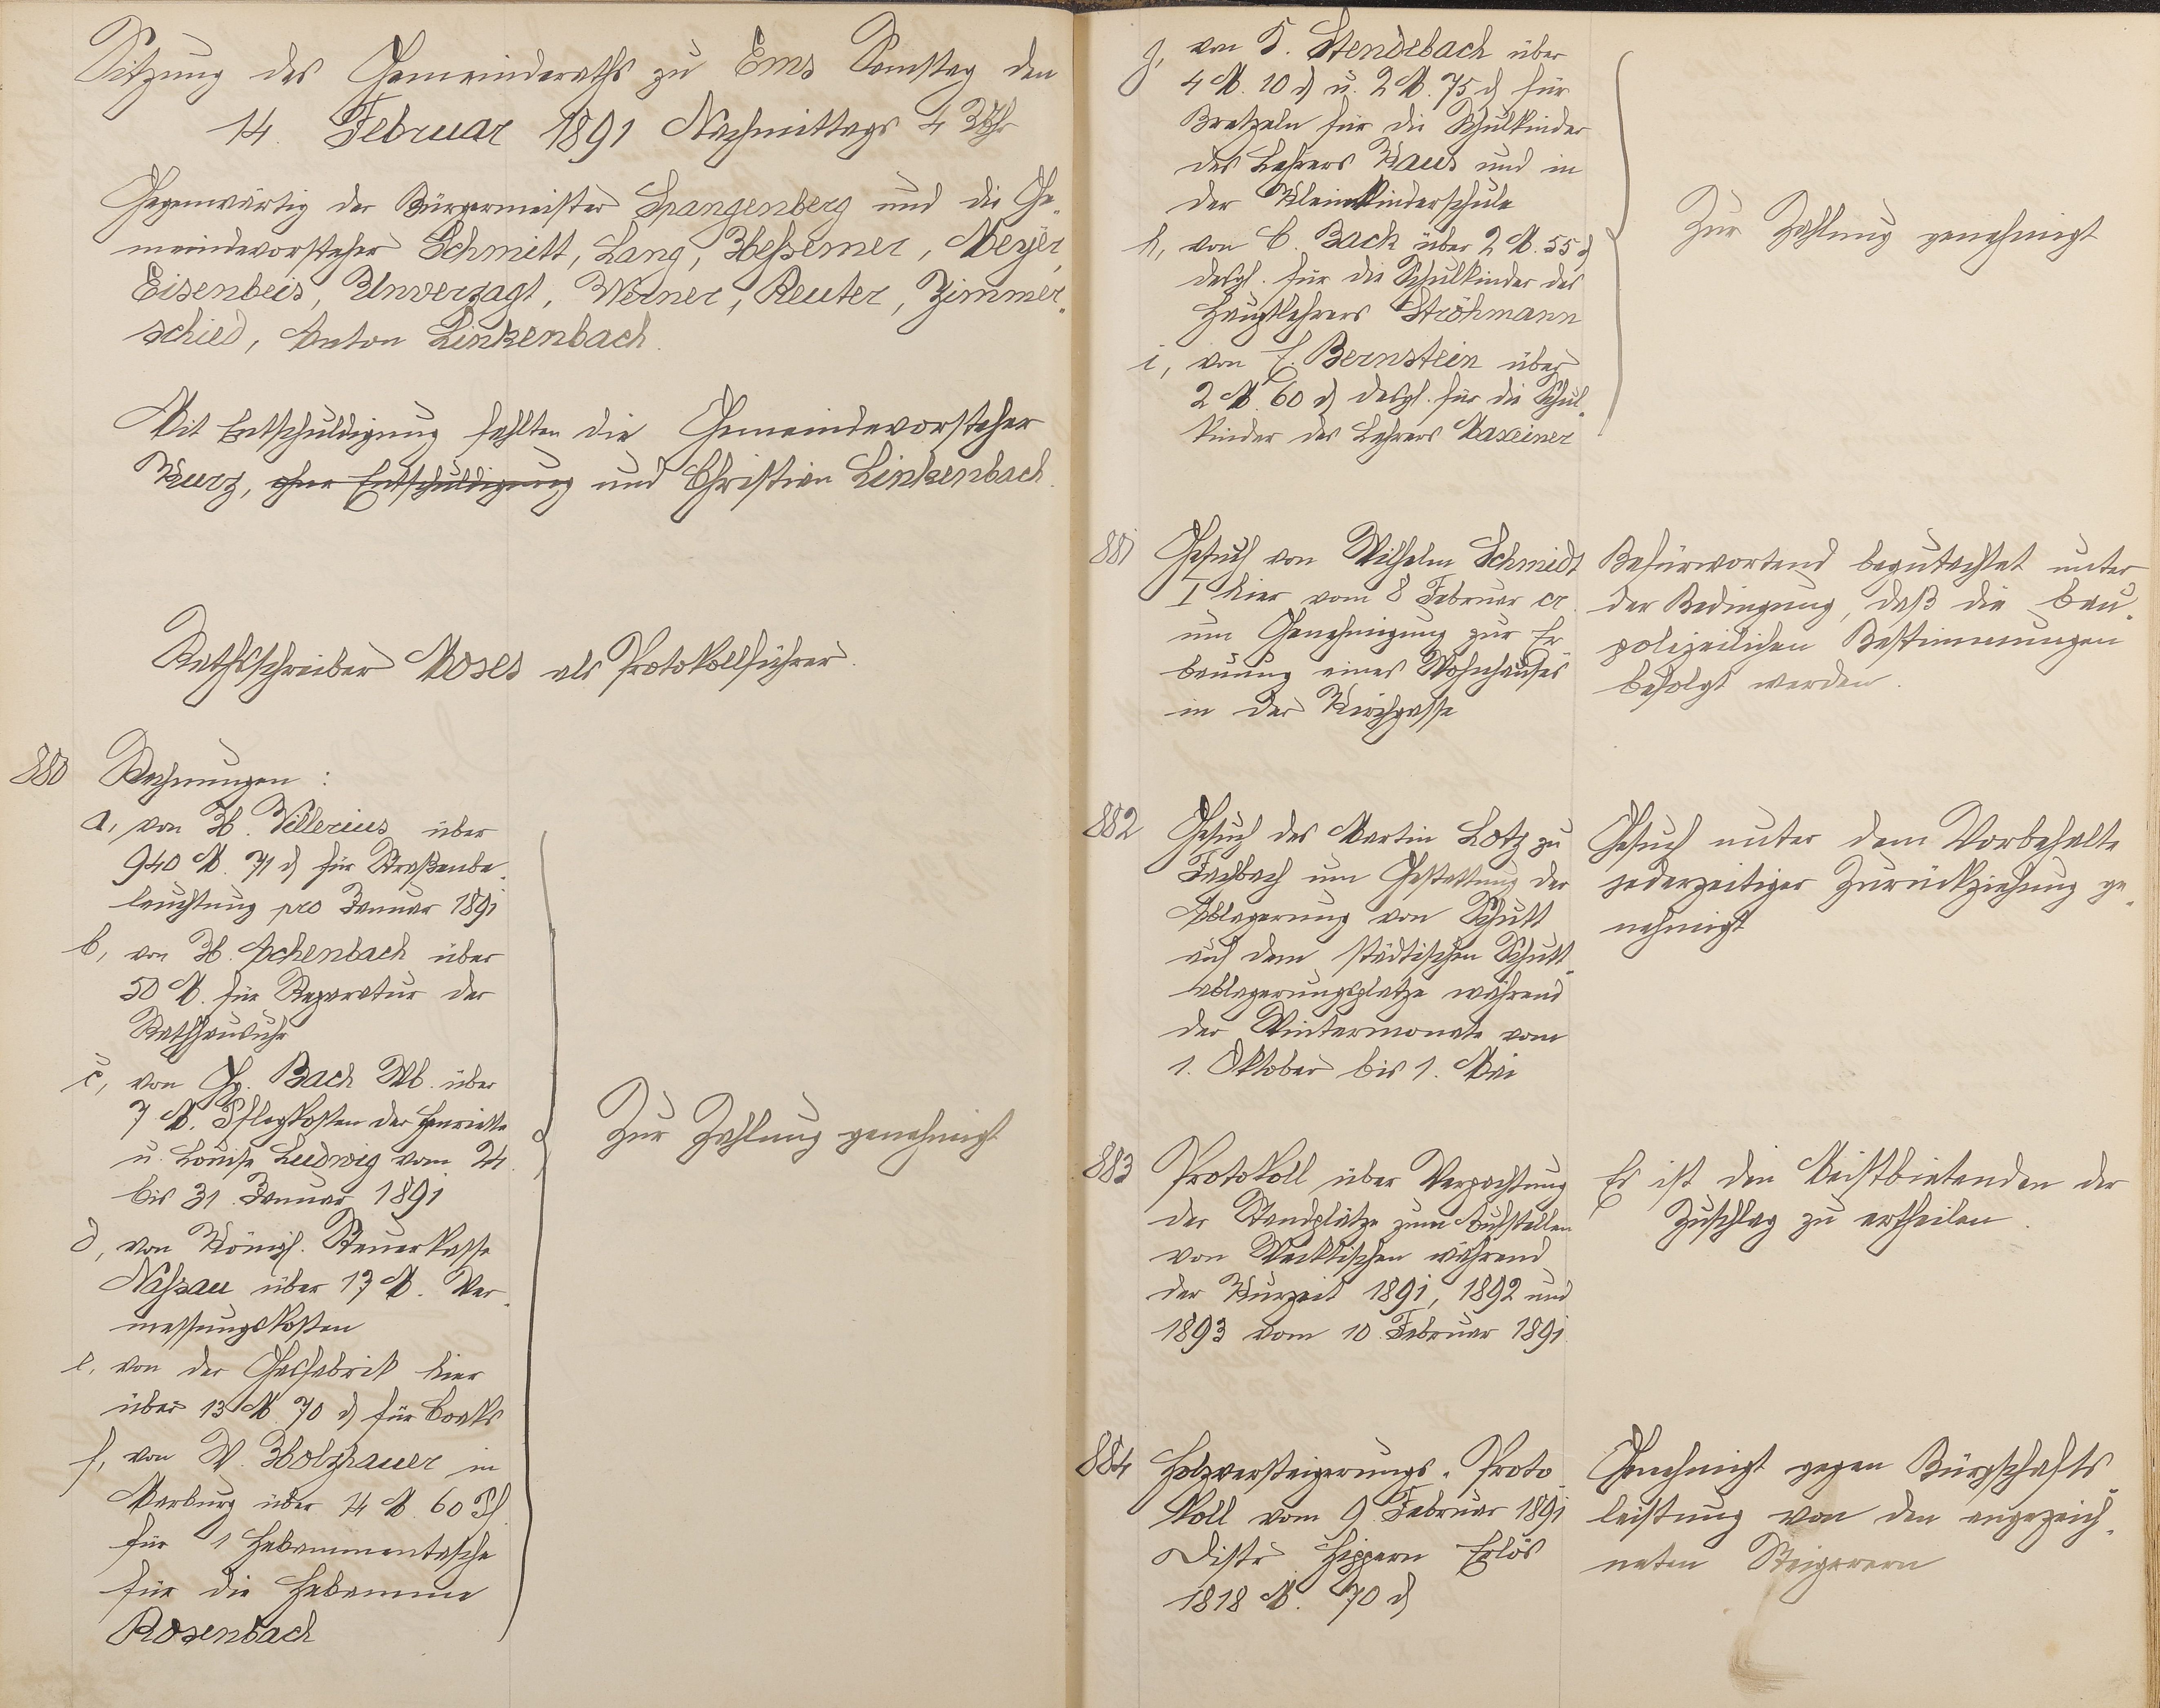 Sitzung des Gemeinderaths zu Ems Samstag den
14. Februar 1891 Nachmittags 4 Uhr
Gegenwärtig der Bürgermeister Spangenberg und die Ge-
meindevorsteher Schmitt, Lang, Heßemer, Meyer,
Eisenbeis, Unverzagt, Werner, Reuter, Zimmer-
schied, Anton Linkenbach.
Mit Entschuldigung fehlten die Gemeindevorsteher
Kurz, ohne Entschuldigung und Christian Linkenbach.
Rathsschreiber Moses als Protokollführer.
880 Rechnungen :
a, von H. Villerius über
940 M. 71 d für Straßenbe-
leuchtung pro Januar 1891
b, von H. Achenbach über
50 M. für Reparatur der
Rathhausuhr
c, von Gg. Bach Wb. über
7 M. Pflegkosten der Henriette
u. Louise Ludwig vom 24.
bis 31. Januar 1891
d, von Königl. Steuerkasse
Naßau über 17 M. Ver-
messungskosten
e, von der Gasfabrik hier
über 13 M. 70 d für Coaks
f, von W. Holzhauer in
Marburg über 14 M. 60 Pf.
für 1 Hebammentasche
für die Hebamme
Rosenbach
Zur Zahlung genehmigt
g, von F. Stendebach über
4 M. 10 d u. 2 M. 75 d für
Bretzeln für die Schulkinder
des Lehrers Kaus und in
der Kleinkinderschule
h, von C. Back über 2 M. 55 d
desgl. für die Schulkinder des
Hauptlehrers Ströhmann
i, von E. Bernstein über
2 M. 60 d desgl. für die Schul-
kinder des Lehrers Maxeiner
Zur Zahlung genehmigt
881 Gesuch von Wilhelm Schmidt
I hier vom 8 Februar cr.
um Genehmigung zur Er-
bauung eines Wohnhauses
in der Kirchgasse
Befürwortend begutachtet unter
der Bedingung, daß die bau-
polizeilichen Bestimmungen
befolgt werden.
882 Gesuch des Martin Lotz zu
Fachbach um Gestattung der
Ablagerung von Schutt
auf dem städtischen Schutt-
ablagerungsplatze während
der Wintermonate vom
1. Oktober bis 1. Mai
Gesuch unter dem Vorbehalte
jederzeitiger Zurückziehung ge-
nehmigt
883 Protokoll über Verpachtung
der Standplätze zum Aufstellen
von Wecktischen während
der Kurzeit 1891, 1892 und
1893 vom 10. Februar 1891.
Es ist den Meistbietenden der
Zuschlag zu ertheilen.
884 Holzversteigerungs-Proto-
koll vom 9. Februar 1891
Distr. Hippern Erlös
1818 M. 70 d
Genehmigt gegen Bürgschafts-
leistung von den eingezeich-
neten Steigerern